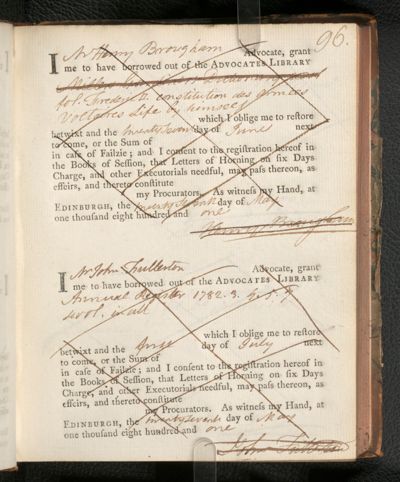 96.
I Mr Henry Brougham Advocate, grant
me to have borrowed out of the ADVOCATES LIBRARY
tol. Frederick. constitution des
Voltaires Life by himself
which I oblige me to restore
betwixt and the twenty seventh day of June next
to come, or the Sum of
in case of Failzie; and I consent to the registration hereof in
the Books of Session, that Letters of Horning on six Days
Charge, and other Executorials needful, may pass thereon, as
effeirs, and thereto constitute
my Procurators. As witness my Hand, at
EDINBURGH, the twenty seventh day of May
one thousand eight hundred and one
Henry Brougham
I Mr John Fullerton Advocate, grant
me to have borrowed out of the ADVOCATES LIBRARY
Annual Register 1782. 3. 4. 5. 7.
vol. in all
which I oblige me to restore
betwixt and the day of July next
to come, or the Sum of
in case of Failzie; and I consent to the registration hereof in
the Books of Session, that Letters of Horning on six Days
Charge, and other Executorials needful, may pass thereon, as
effeirs, and thereto constitute
my Procurators. As witness my Hand, at
EDINBURGH, the twenty seventh day of May
one thousand eight hundred and one
John Fullerton